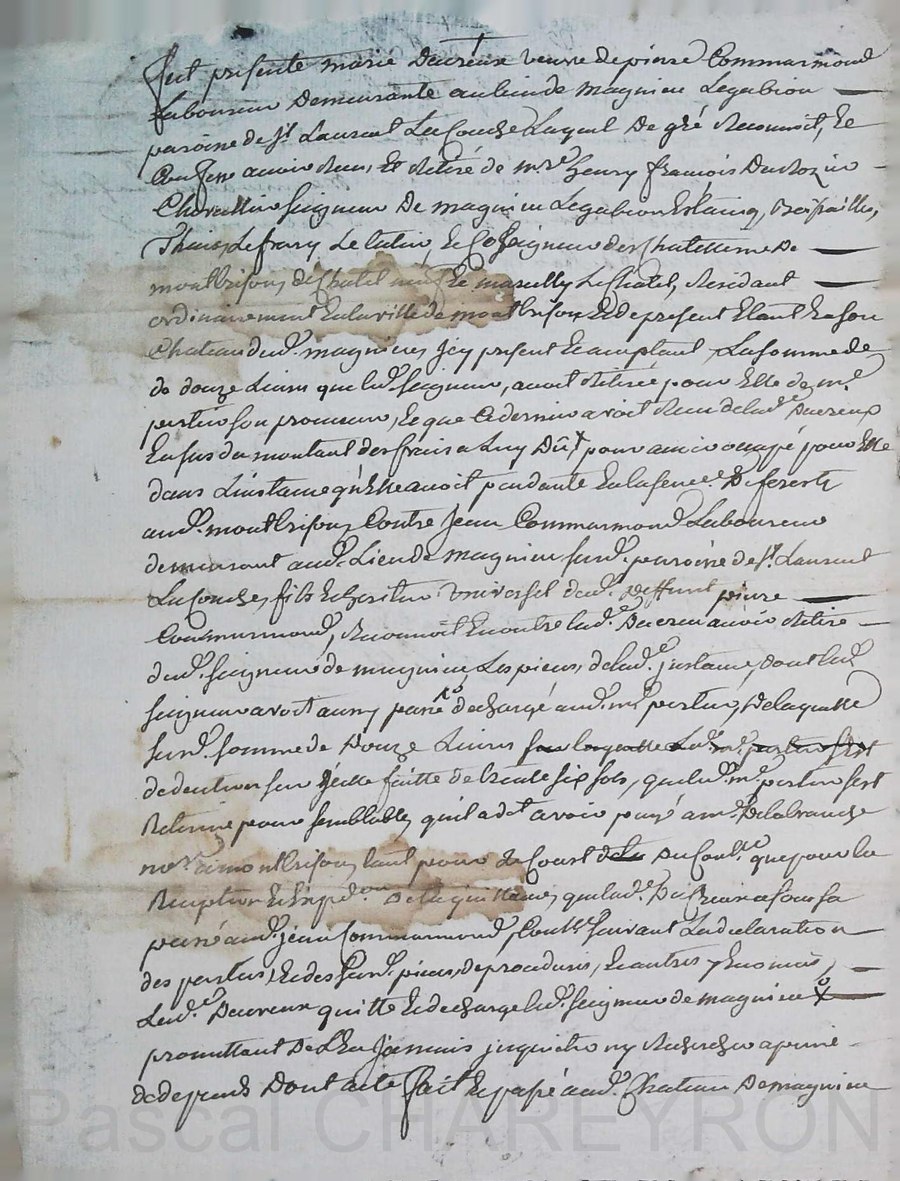 fut presente marie Decreux veuve de pierre Commarmond
Laboureur Demeurante au lieu de magnieu Legabion
paroisse de st. Laurent La Conche Laquel De gré Reconnoit, Et
Confesse avoir Reçu, Et Retiré de m.re henry françois Du Rozier
Chevallier Seigneur De magnieu Legabion Estaing,
Thuis, Le fray, Le Seigneur des Chatellenie De
montbrison, de Chatel neuf Et marcilly Le Chatel, Residant
ordinairement En la ville de montbrison Et de present Etant En son
Chateau dud. magnieu, Icy present Et acceptant, La somme de
de douze Livres que led. Seigneur, avoit Retirée pour Elle de m.e
pertus son procureur, Et que Ce dernier avoit Reçu de lad.e Decreux
En sus du montant des frais a Luy Dût pour avoir occupé pour Elle
dans L'instance qu'Elle avoit pendante En la senec.ee De forests
aud. montbrison, Contre Jean Commarmond Laboureur
demeurant aud. Lieu de magnieu surd. paroisse de st. Laurent
La Conche, fils Et heritier universel dud. deffunt pierre
Commarmond, Reconnoit En outre lad.e Decreux avoir Retiré
dud. Seigneur de magnieu, Les pieces, de lad.e instance, dont led.
Seigneur avoit aussy passé decharge aud. m.e pertus, De laquelle
surd. somme de Douze Livres sur laquelle Led. m.e pertus s'est
deduction sera faitte de trente six sols, que led. m.e pertus s'est
Retenue pour semblables qu'il a dit avoir payé a m.e Delabranche
no.re a montbrison, tant pour de la Du que pour la
Reception Et Exped.on De la quittance, que lad.e De Creux a
passé aud. jean Commarmond, suivant La declaration
des pertus, Et des surd. pieces, de procedures, Et autres
Lad.e Decreux quitte Et decharge led. Seigneur de magnieu x
promettant De L'En Jamais inquietter ny Rechercher a peine
de depends Dont acte fait Et passé aud. Chateau De magnieu
Pascal CHAREYRON